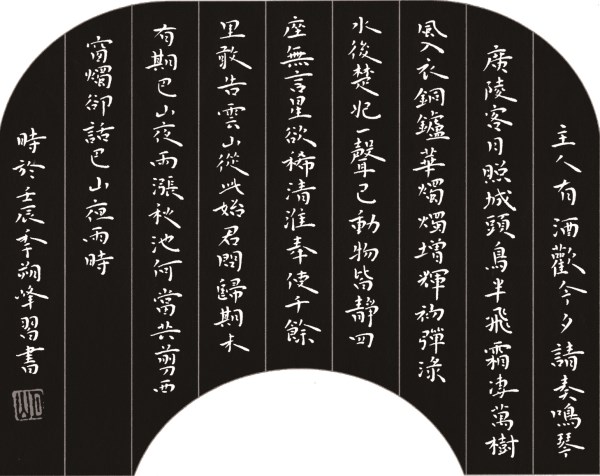 主人有酒歡今夕請奏鳴琴
廣陵客月照城頭鳥半飛霜凄萬樹
風入衣銅鑪華燭燭增輝初彈淥
水後楚妃一聲已動物皆靜四
座無言星欲稀清淮奉使千餘
里敢告雲山從此始君問歸期未
有期巴山夜雨漲秋池何當共剪西
窗燭卻話巴山夜雨時
時於壬辰季朔峰習書